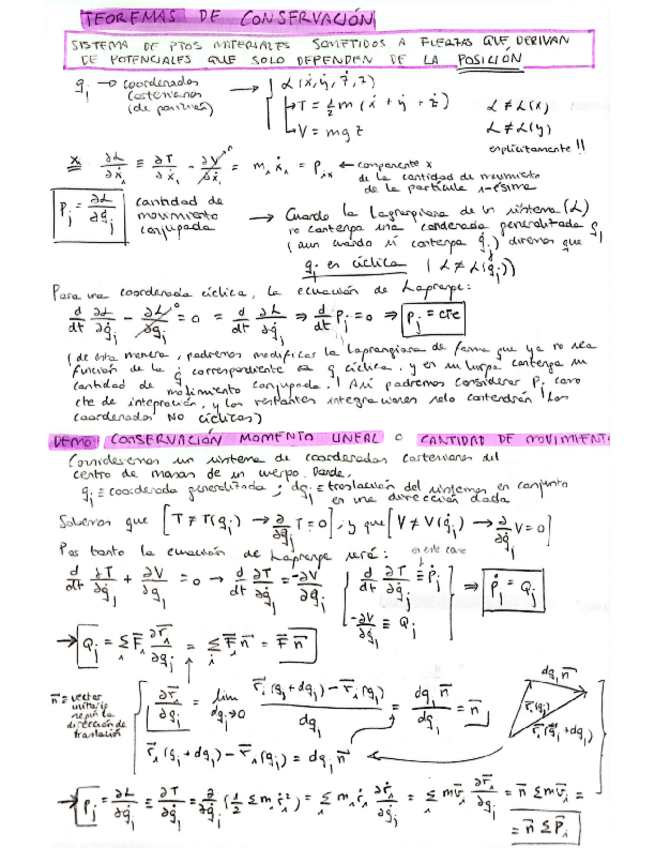 TEOREMAS DE CONSERVACIÓN
SISTEMA DE PTOS MATERIALES SOMETIDOS A FUERZAS QUE DERIVAN
DE POTENCIALES QUE SOLO DEPENDEN DE LA POSICIÓN
q_j → coordenadas cartesianas (de posición) → L(ẋ,ẏ,ż,z)
↳ T = ½ m (ẋ + ẏ + ż)
L ≠ L(x)
↳ V = mgz
L ≠ L(y)
explícitamente!!
x ∂L/∂ẋ_i ≡ ∂T/∂ẋ_i - ∂V/∂ẋ_i = m_i ẋ_i = P_ix ← componente x
de la cantidad de movimiento
de la partícula i-ésima
P_j = ∂L/∂q̇_j cantidad de movimiento conjugada
→ Cuando la Lagrangiana de un sistema (L)
no contenga una coordenada generalizada q_j
(aun cuando sí contenga q̇_j) diremos que
q_j es cíclica (L ≠ L(q_j))
Para una coordenada cíclica, la ecuación de Lagrange:
d/dt ∂L/∂q̇_j - ∂L/∂q_j = 0 = d/dt ∂L/∂q̇_j ⇒ d/dt P_j = 0 ⇒ P_j = cte
(de esta manera, podremos modificar la Lagrangiana de forma que ya no sea
función de la q̇ correspondiente a q cíclica, y en su lugar contenga su
cantidad de movimiento conjugada. Así podremos considerar P_j como
cte de integración, y las restantes integraciones solo contendrán las
coordenadas NO cíclicas)
DEMO: CONSERVACIÓN MOMENTO LINEAL o CANTIDAD DE MOVIMIENTO
Consideremos un sistema de coordenadas cartesianas del
centro de masas de un cuerpo. Donde,
q_j ≡ coordenada generalizada ; dq_j ≡ traslación del sistema en conjunto
en una dirección dada
Sabemos que [T ≠ T(q_j) → ∂/∂q_j T = 0] ; y que [V ≠ V(q̇_j) → ∂/∂q̇_j V = 0]
Por tanto la ecuación de Lagrange será: en este caso
d/dt ∂T/∂q̇_j + ∂V/∂q_j = 0 → d/dt ∂T/∂q̇_j = -∂V/∂q_j { d/dt ∂T/∂q̇_j ≡ Ṗ_j ⇒ Ṗ_j = Q_j
-∂V/∂q_j ≡ Q_j
→ Q_j = Σ_i F̄_i ∂r̄_i/∂q_j = Σ_i F̄_i n̄ = F̄ n̄
n̄ ≡ vector unitario según la dirección de translación
∂r̄_i/∂q_j = lim dq_j→0 r̄_i(q_j + dq_j) - r̄_i(q_j) / dq_j = dq_j n̄ / dq_j = n̄
dq_j n̄
r̄_i(q_j)
r̄_i(q_j + dq_j)
r̄_i(q_j + dq_j) - r̄_i(q_j) = dq_j n̄
→ P_j = ∂L/∂q̇_j ≡ ∂T/∂q̇_j = ∂/∂q̇_j (½ Σ m_i ṙ_i²) = Σ_i m_i ṙ_i ∂ṙ_i/∂q̇_j = Σ_i m v̄_i ∂r̄_i/∂q_j = n̄ Σ m v̄_i =
= n̄ Σ P̄_i